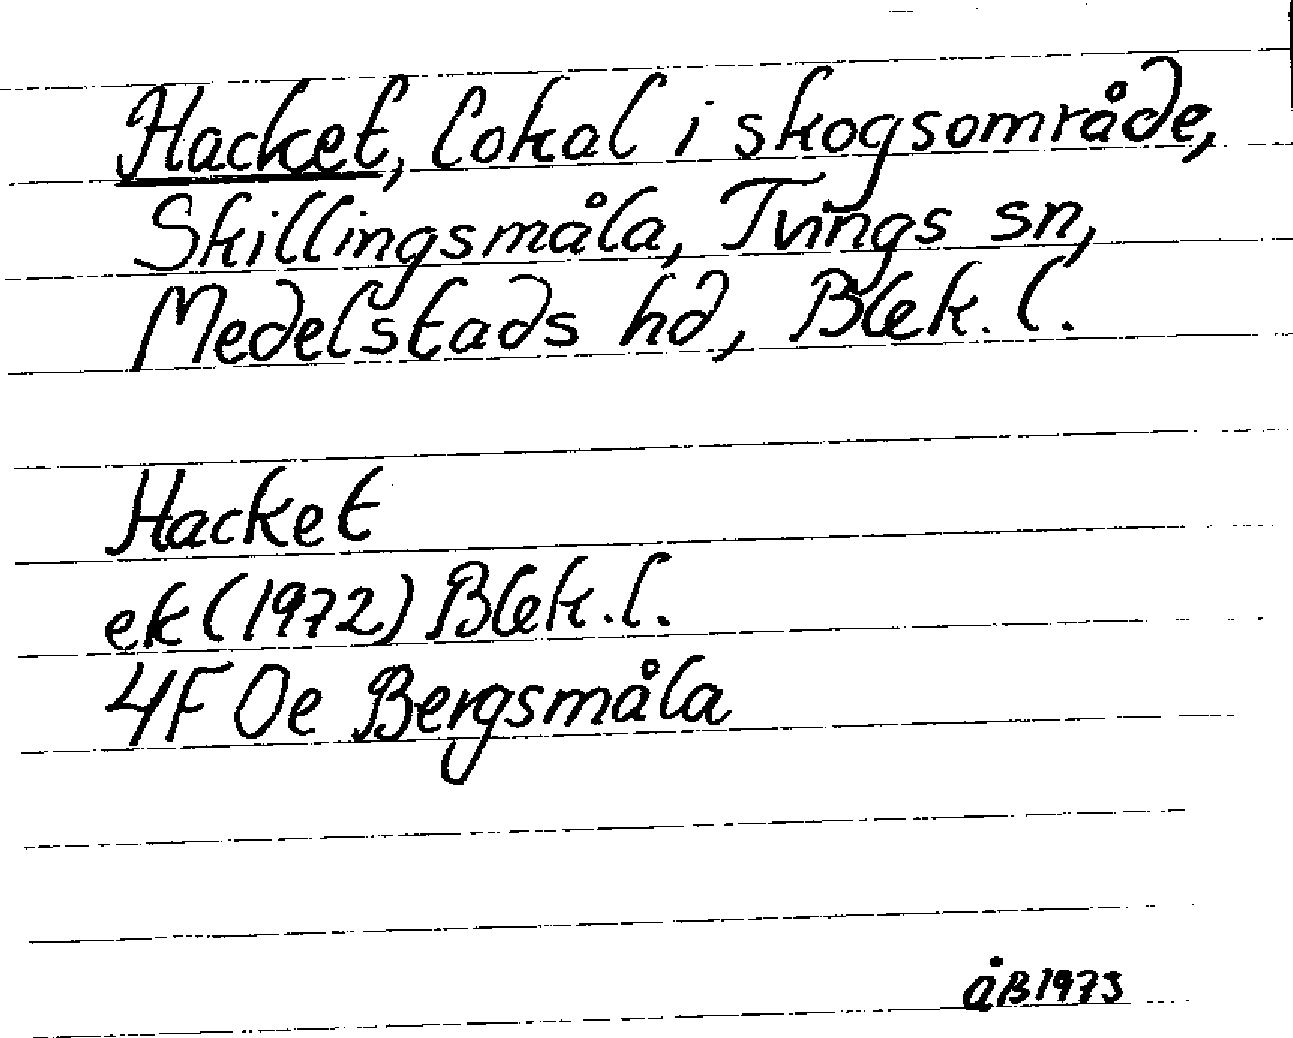 Hacket, lokal i skogsområde,
Skillingsmåla, Tvings sn,
Medelstads hd, Blek. l.
Hacket
ek (1972) Blek. l.
4F 0e Bergsmåla
ÅB 1973